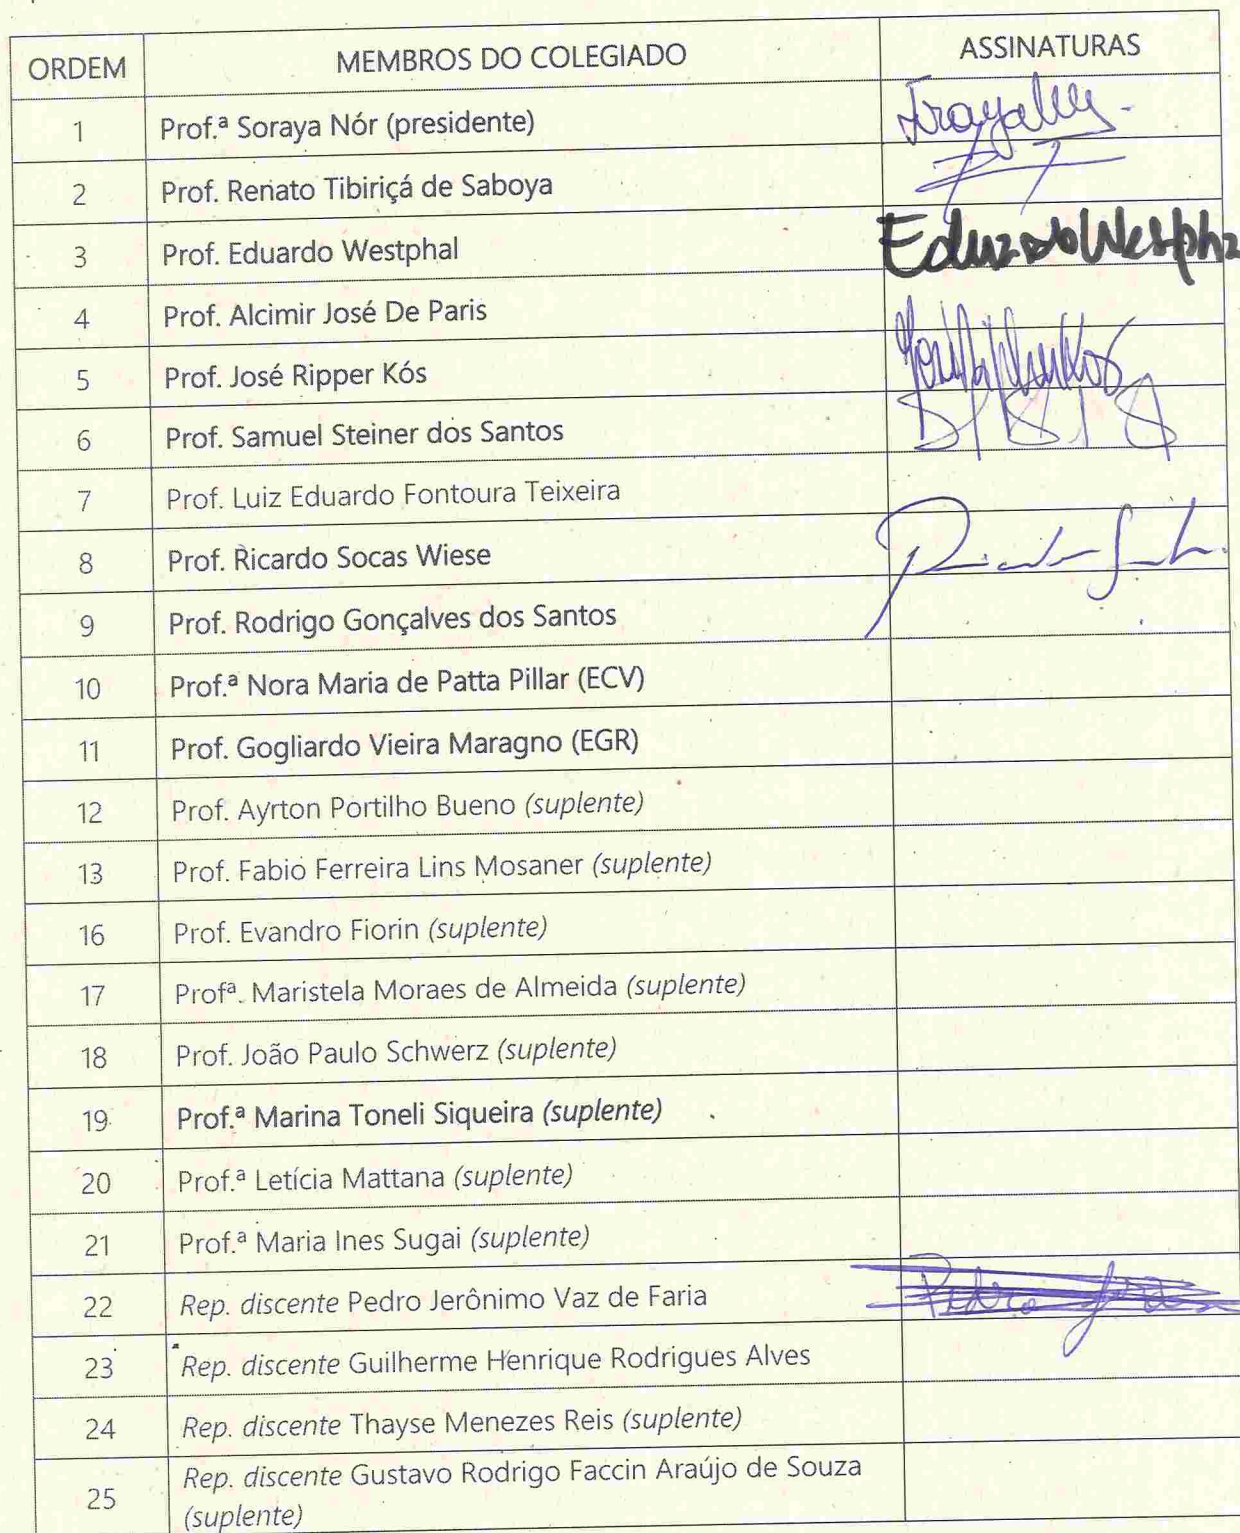 ORDEM MEMBROS DO COLEGIADO ASSINATURAS
1 Prof.ª Soraya Nór (presidente)
2 Prof. Renato Tibiriçá de Saboya
3 Prof. Eduardo Westphal Eduardo Westphal
4 Prof. Alcimir José De Paris
5 Prof. José Ripper Kós
6 Prof. Samuel Steiner dos Santos
7 Prof. Luiz Eduardo Fontoura Teixeira
8 Prof. Ricardo Socas Wiese
9 Prof. Rodrigo Gonçalves dos Santos
10 Prof.ª Nora Maria de Patta Pillar (ECV)
11 Prof. Gogliardo Vieira Maragno (EGR)
12 Prof. Ayrton Portilho Bueno (suplente)
13 Prof. Fabio Ferreira Lins Mosaner (suplente)
16 Prof. Evandro Fiorin (suplente)
17 Profª. Maristela Moraes de Almeida (suplente)
18 Prof. João Paulo Schwerz (suplente)
19 Prof.ª Marina Toneli Siqueira (suplente)
20 Prof.ª Letícia Mattana (suplente)
21 Prof.ª Maria Ines Sugai (suplente)
22 Rep. discente Pedro Jerônimo Vaz de Faria Pedro
23 Rep. discente Guilherme Henrique Rodrigues Alves
24 Rep. discente Thayse Menezes Reis (suplente)
25 Rep. discente Gustavo Rodrigo Faccin Araújo de Souza
(suplente)